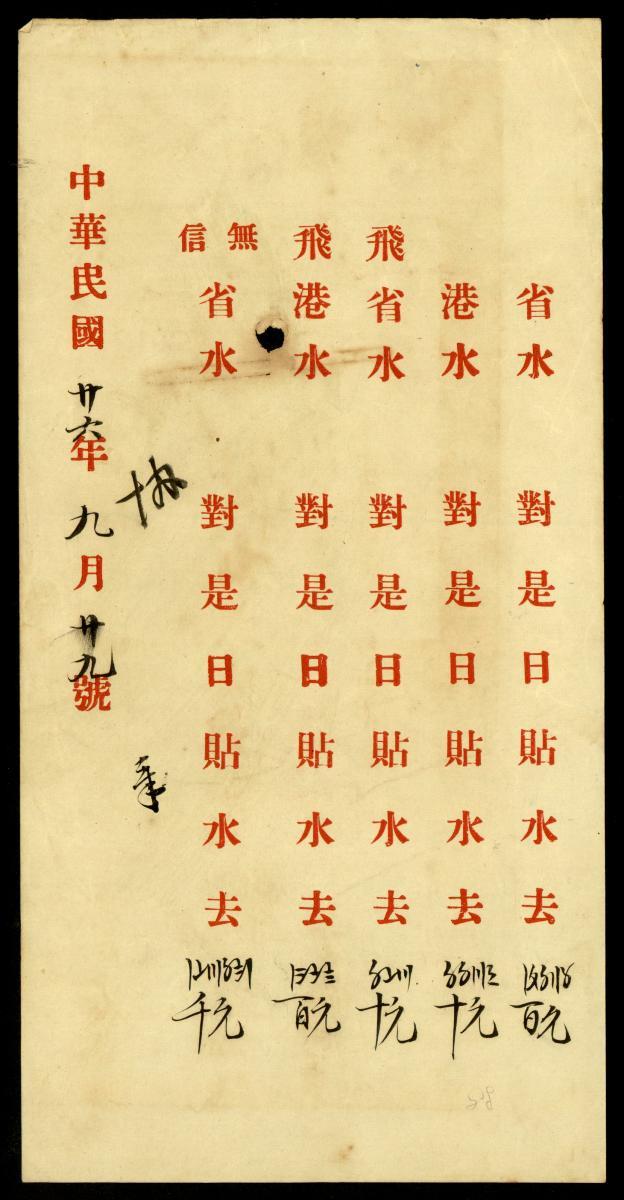 省水 對是日貼水去 百元
港水 對是日貼水去 十元
飛省水 對是日貼水去 十元
飛港水 對是日貼水去 百元
無信省水 對是日貼水去 千元
中華民國廿六年九月廿九號